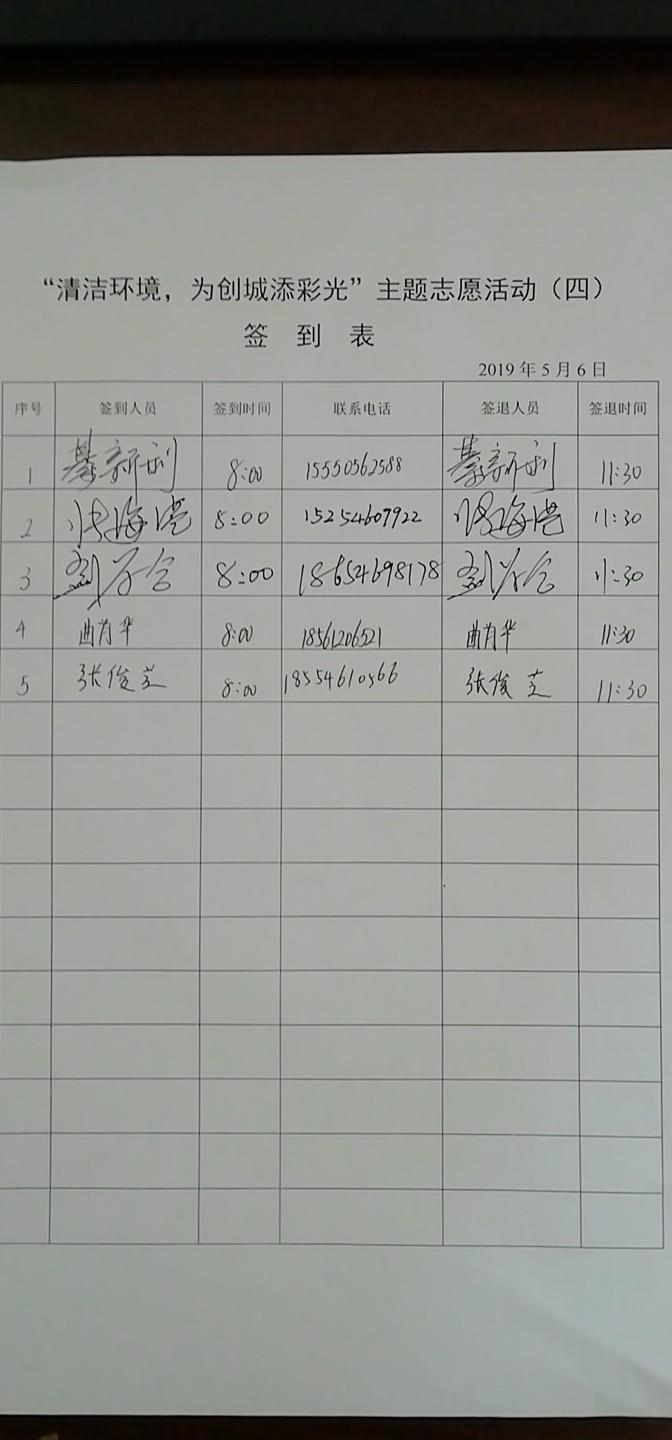 “清洁环境，为创城添彩光”主题志愿活动（四）
签 到 表
2019年5月6日
序号 签到人员 签到时间 联系电话 签退人员 签退时间
1 綦新利 8:00 15550562588 綦新利 11:30
2 张海港 8:00 15254607922 张海港 11:30
3 8:00 18654698178 11:30
4 曲前华 8:00 18561206521 曲前华 11:30
5 张俊芝 8:00 18554610566 张俊芝 11:30